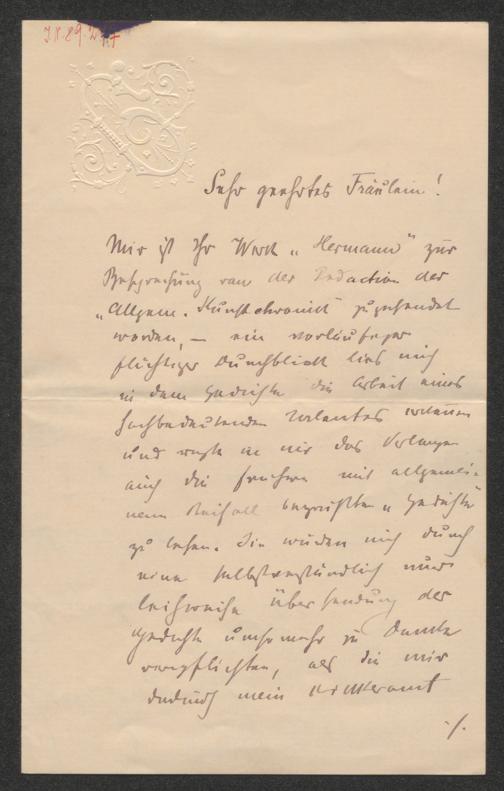 Sehr geehrtes Fräulein!
Mir ist Ihr Werk „Hermann“ zur
Besprechung von der Redaction der
„Allgem. Kunstchronik“ zugesendet
worden, — ein vorläufiger
flüchtiger Durchblick ließ mich
in dem Gedichte die Arbeit eines
hochbedeutenden Talentes erkennen
und regte in mir das Verlangen
auch die früheren mit allgemei-
nem Beifall begrüßten „Gedichte“
zu lesen. Sie würden mich durch
eine selbstverständlich nur
leihweise Übersendung der
Gedichte umsomehr zu Danke
verpflichten, als Sie mir
dadurch mein Kritikeramt
./.